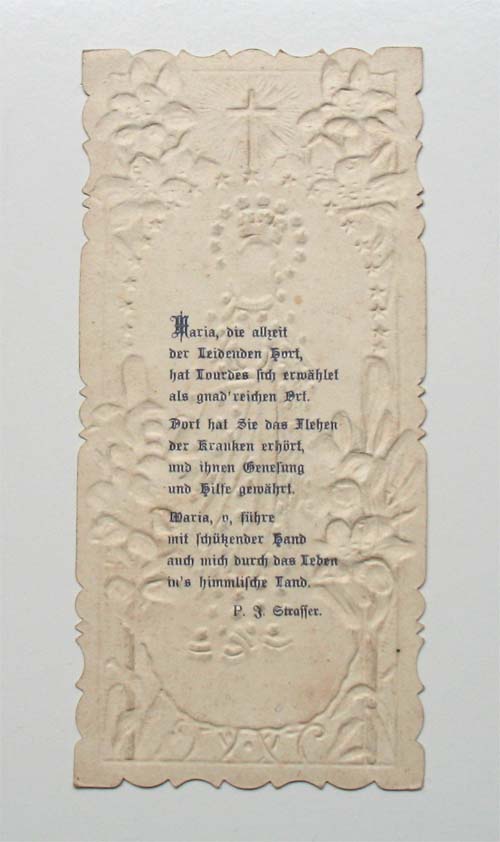 Maria, die allzeit
der Leidenden Hort,
hat Lourdes sich erwählet
als gnad'reichen Ort.
Dort hat Sie das Flehen
der Kranken erhört,
und ihnen Genesung
und Hilfe gewährt.
Maria, o, führe
mit schützender Hand
auch mich durch das Leben
in's himmlische Land.
P. J. Strasser.